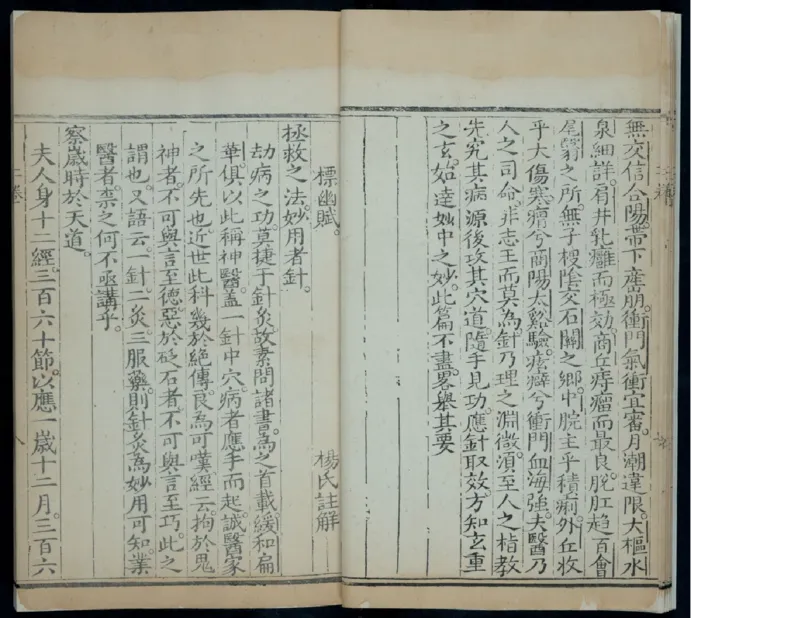 無交信合陽帶下產崩衝門氣衝宜審月潮違限大樞水
泉細詳肩井乳癰而極効商丘痔瘤而最良脫肛趋百會
尾翳之所無子搜陰交石關之鄉中脘主乎積痢外丘收
乎大傷寒痟兮商陽太谿驗痃癖兮衝門血海強夫醫乃
人之司命非志士而莫為針乃理之淵微須至人之指教
先究其病源後攻其穴道隨手見功應針取效方知玄重
之玄始達妙中之妙此篇不盡畧舉其要
標幽賦
楊氏註解
拯救之法妙用者針
劫病之功莫捷于針灸故素問諸書為之首載緩和扁
華俱以此稱神醫蓋一針中穴病者應手而起誠醫家
之所先也近世此科幾於絕傳良為可嘆經云拘於鬼
神者不可與言至德惡於砭石者不可與言至巧此之
謂也又語云一針二灸三服藥則針灸為妙用可知業
醫者柰之何不亟講乎
察歲時於天道
夫人身十二經三百六十節以應一歲十二月三百六